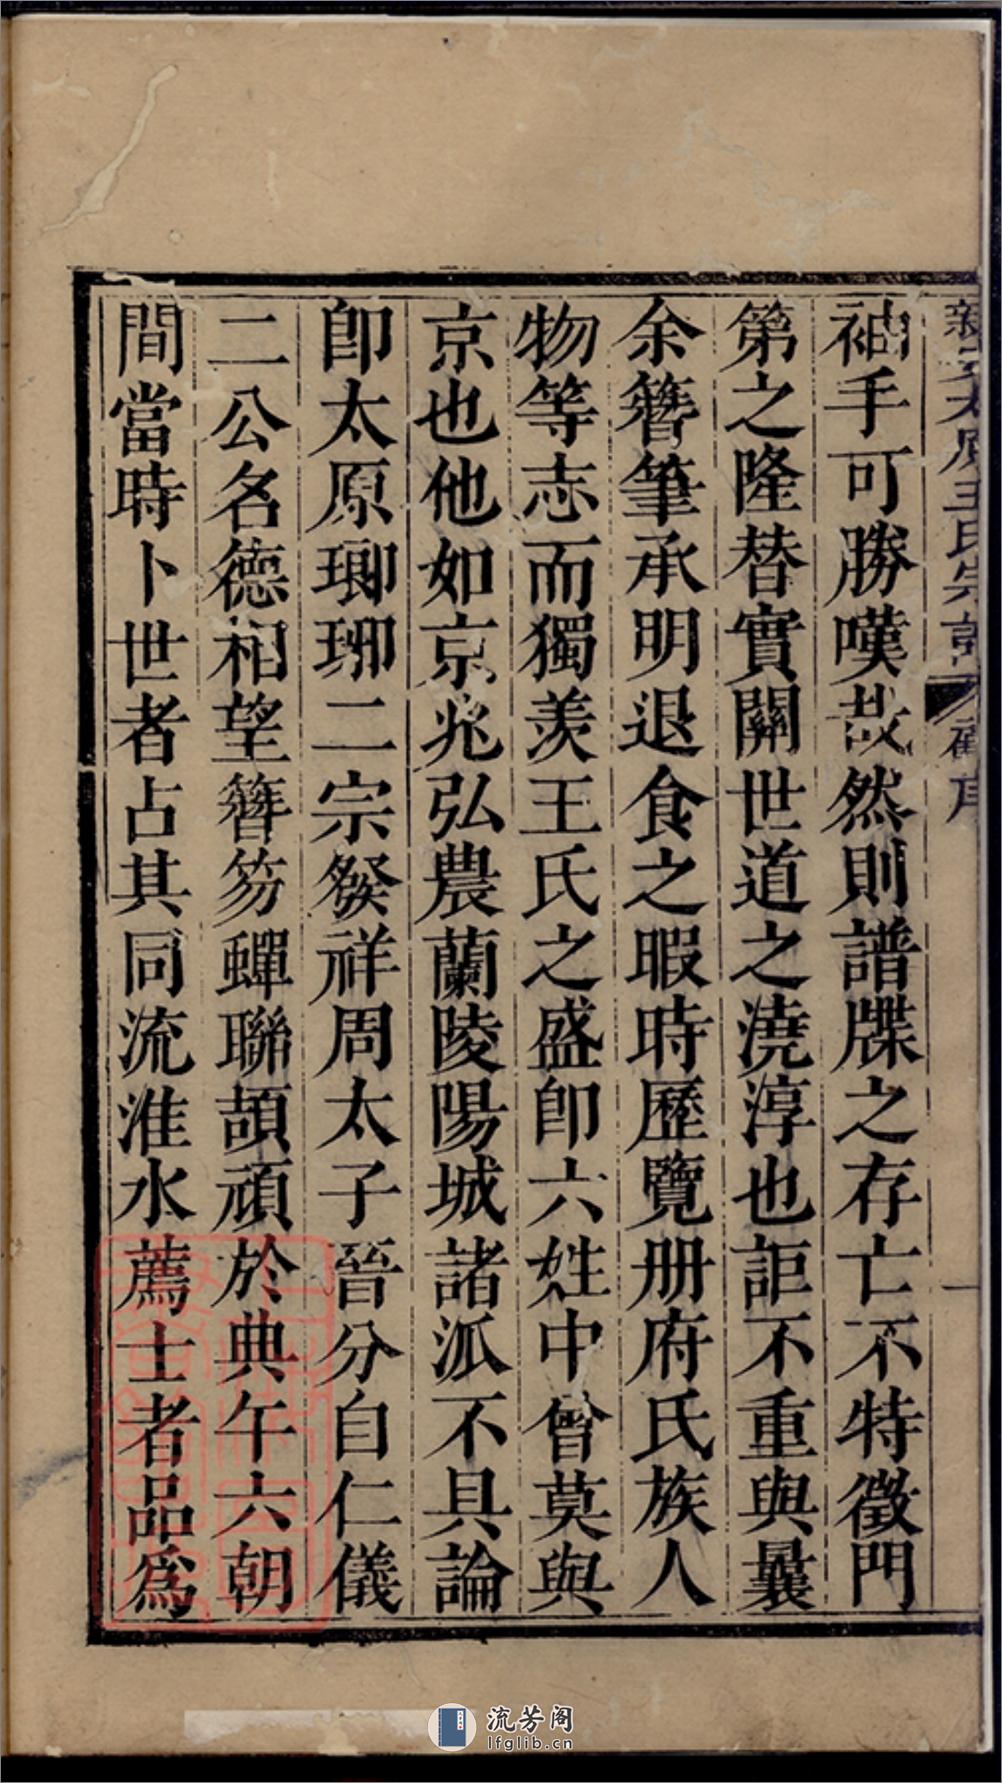 新安太原王氏宗譜 舊序 一
袖手可勝嘆哉然則譜牒之存亡不特徵門
第之隆替實關世道之澆淳也詎不重與曩
余簪筆承明退食之暇時歷覽册府氏族人
物等志而獨羨王氏之盛卽六姓中曾莫與
京也他如京兆弘農蘭陵陽城諸派不具論
卽太原瑯琊二宗發祥周太子晉分自仁儀
二公名德相望簪笏蟬聯頡頏於典午六朝
間當時卜世者占其同流淮水薦士者品爲
流芳阁
lfglib.cn